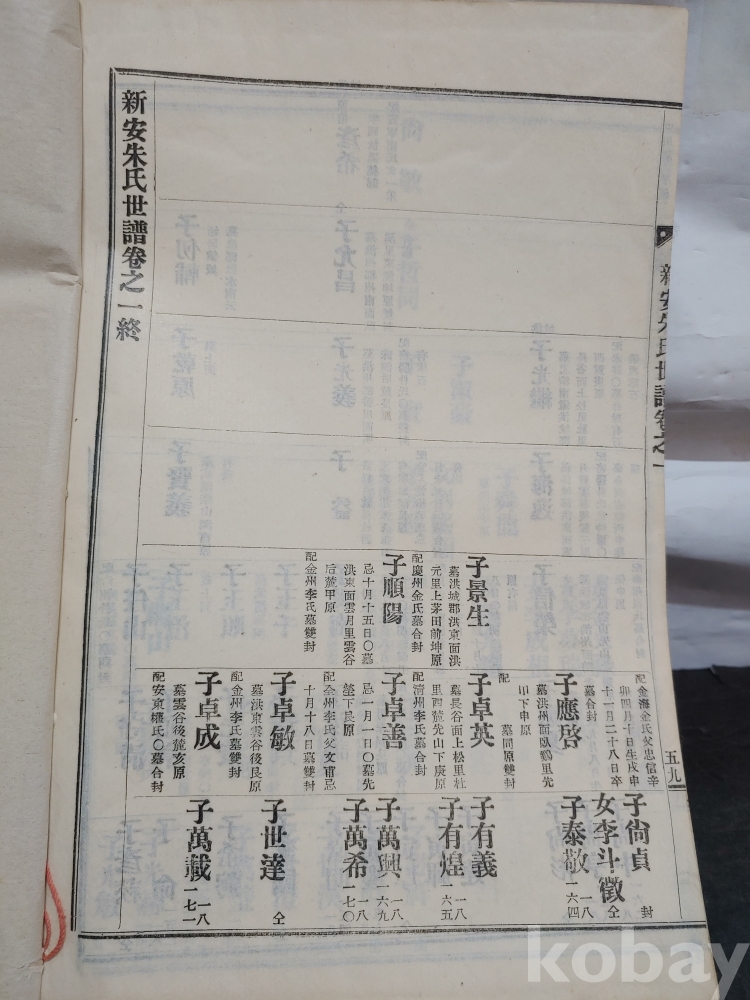 新安朱氏世譜卷之一
五九
子景生
墓洪城郡洪東面洪
元里上茅田前坤原
配慶州金氏墓合封
子順陽
忌十月十五日〇墓
洪東面雲月里雲谷
后麓甲原
配金州李氏墓雙封
配金海金氏父忠信辛
卯四月十日生戊申
十一月二十八日卒
墓合封
子應啓
墓洪州面臥鷄里先
山下申原
配
墓同原雙封
子卓英
墓長谷面上松里杜
里西麓先山下庚原
配清州李氏墓合封
子卓善
忌一月一日〇墓先
塋下艮原
配全州李氏父文甫忌
十月十八日墓雙封
子卓敏
墓洪東雲谷後艮原
配金州李氏墓雙封
子卓成
墓雲谷後麓亥原
配安東權氏〇墓合封
子尙貞
封
女李斗徵
仝
子泰敬
一八
一六四
子有義
一八
一六五
子有煌
子萬興
一八
一六九
子萬希
一八
一七〇
子世達
仝
子萬載
一八
一七一
新安朱氏世譜卷之一終
kobay